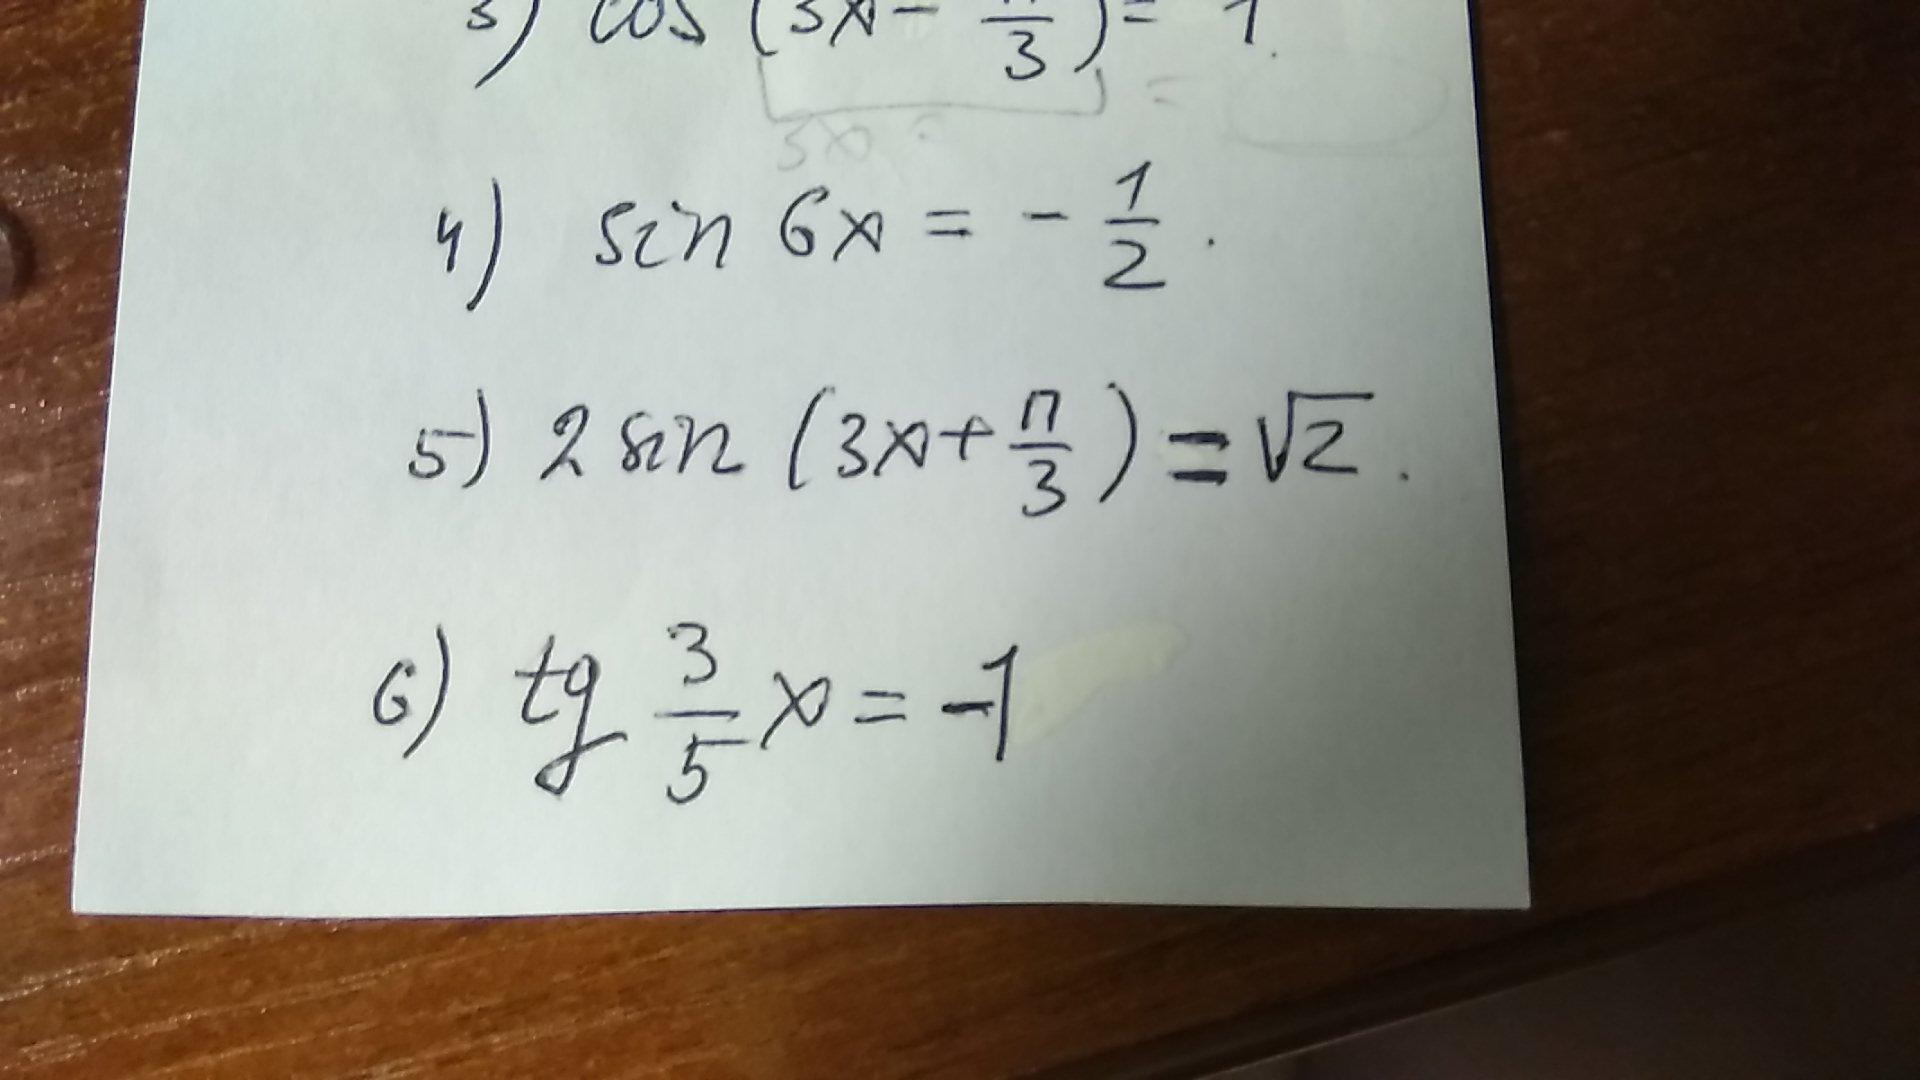 3) cos (3x - π/3) = 1.
3x =
4) sin 6x = - 1/2.
5) 2 sin (3x + π/3) = √2.
6) tg 3/5 x = -1